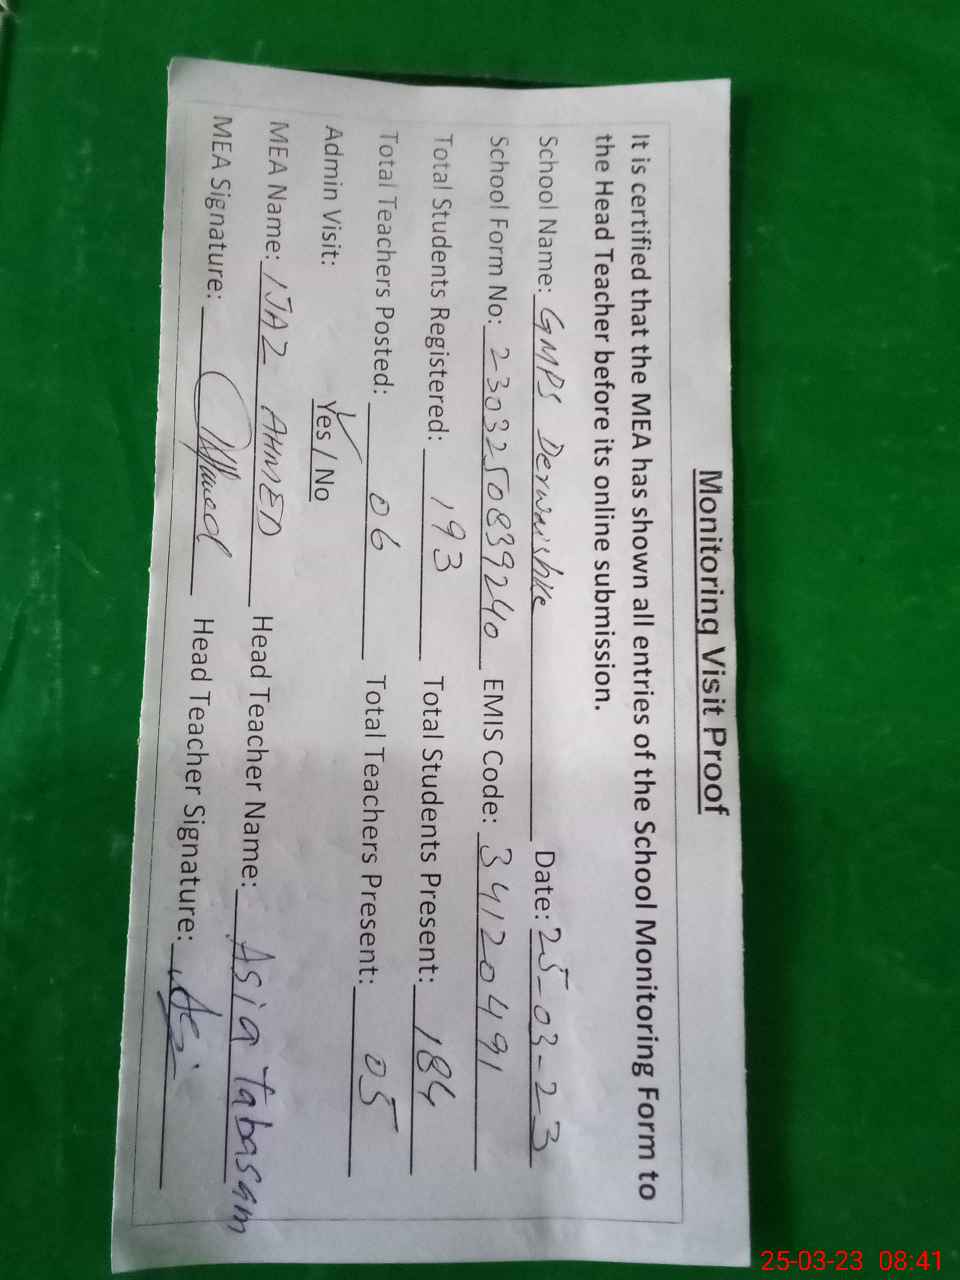 Monitoring Visit Proof
It is certified that the MEA has shown all entries of the School Monitoring Form to
the Head Teacher before its online submission.
School Name: GMPS Derwaishke Date: 25-03-23
School Form No: 2303250839240 EMIS Code: 34120491
Total Students Registered: 193 Total Students Present: 184
Total Teachers Posted: 06 Total Teachers Present: 05
Admin Visit: Yes / No
MEA Name: IJAZ AHMED Head Teacher Name: Asia tabasam
MEA Signature: Head Teacher Signature:
25-03-23 08:41